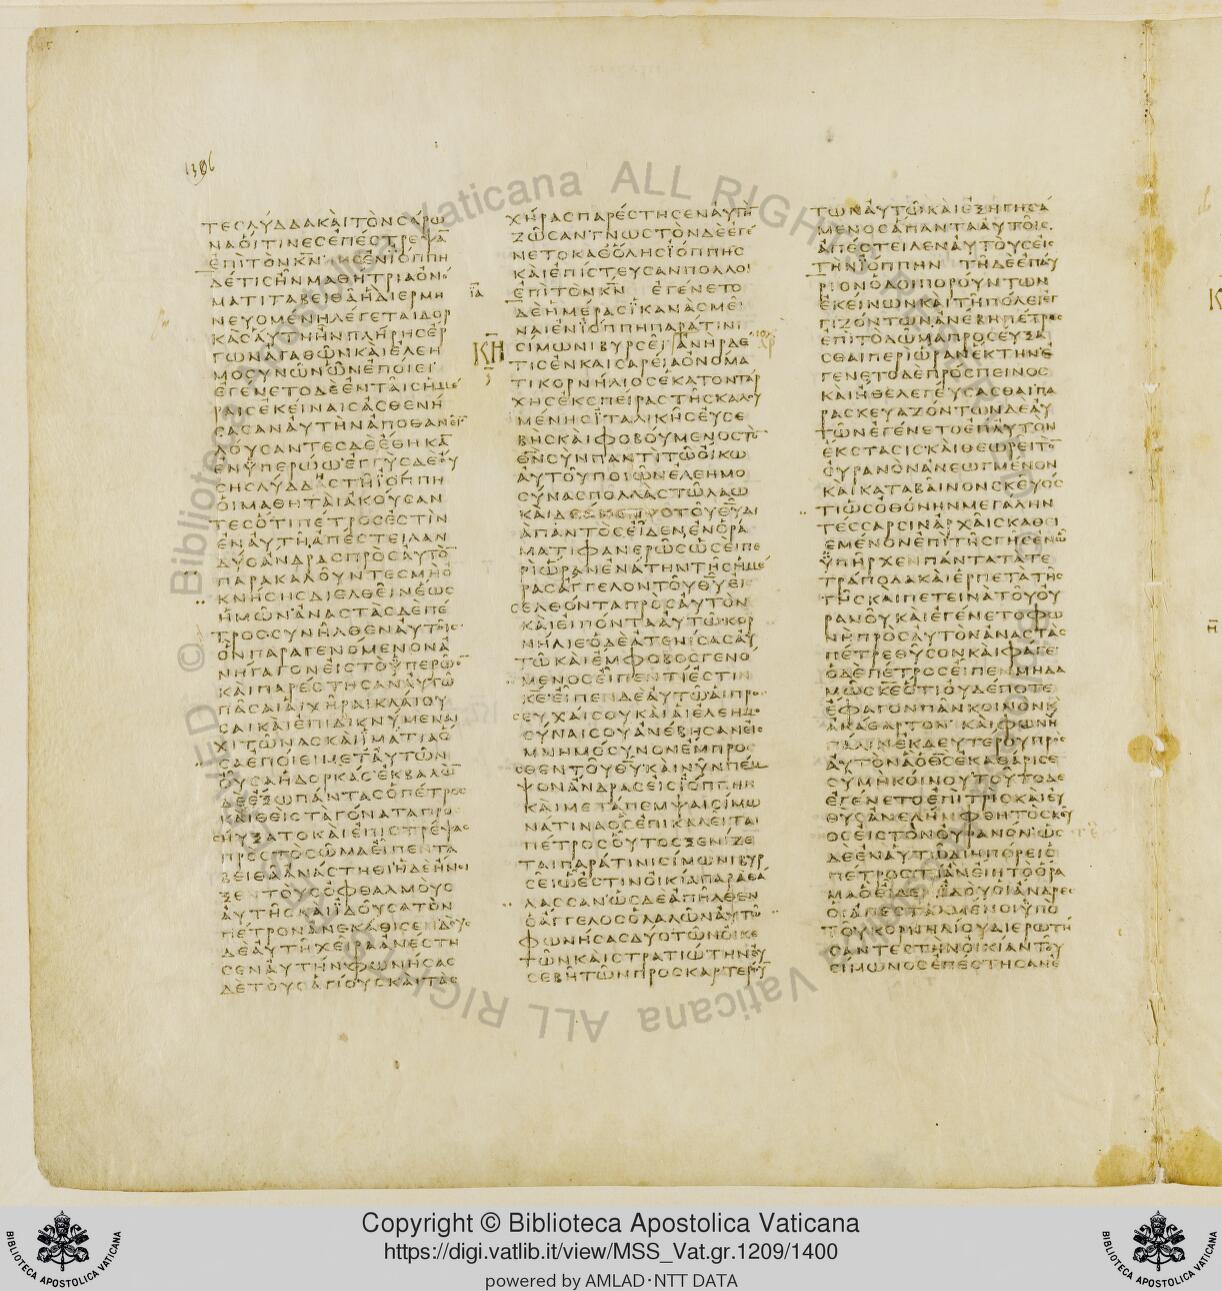 1396
ΤΕΣΛΥΔΔΑΚΑΙΤΟΝΣΑΡΩ
ΝΑΟΙΤΙΝΕΣΕΠΕΣΤΡΕΨΑ̅
ΕΠΙΤΟΝΚ̅Ν̅ ΕΝΙΟΠΠΗ
ΔΕΤΙΣΗΝΜΑΘΗΤΡΙΑΟΝΟ
ΜΑΤΙΤΑΒΕΙΘΑΗΔΙΕΡΜΗ
ΝΕΥΟΜΕΝΗΛΕΓΕΤΑΙΔΟΡ
ΚΑΣΑΥΤΗΗΝΠΛΗΡΗΣΕΡ
ΓΩΝΑΓΑΘΩΝΚΑΙΕΛΕΗ
ΜΟΣΥΝΩΝΩΝΕΠΟΙΕΙ
ΕΓΕΝΕΤΟΔΕΕΝΤΑΙΣΗΜΕ
ΡΑΙΣΕΚΕΙΝΑΙΣΑΣΘΕΝΗ
ΣΑΣΑΝΑΥΤΗΝΑΠΟΘΑΝΕΙ̅
ΛΟΥΣΑΝΤΕΣΔΕΕΘΗΚΑ̅
ΕΝΥΠΕΡΩΩΕΓΓΥΣΔΕΟΥ
ΣΗΣΛΥΔΔΑΣΤΗΙΟΠΠΗ
ΟΙΜΑΘΗΤΑΙΑΚΟΥΣΑΝ
ΤΕΣΟΤΙΠΕΤΡΟΣΕΣΤΙΝ
ΕΝΑΥΤΗΑΠΕΣΤΕΙΛΑΝ
ΔΥΟΑΝΔΡΑΣΠΡΟΣΑΥΤΟ̅
ΠΑΡΑΚΑΛΟΥΝΤΕΣΜΗΟ
ΚΝΗΣΗΣΔΙΕΛΘΕΙΝΕΩΣ
ΗΜΩΝΑΝΑΣΤΑΣΔΕΠΕ
ΤΡΟΣΣΥΝΗΛΘΕΝΑΥΤΟΙΣ
ΟΝΠΑΡΑΓΕΝΟΜΕΝΟΝΑ
ΝΗΓΑΓΟΝΕΙΣΤΟΥΠΕΡΩΟ̅
ΚΑΙΠΑΡΕΣΤΗΣΑΝΑΥΤΩ
ΠΑΣΑΙΑΙΧΗΡΑΙΚΛΑΙΟΥ
ΣΑΙΚΑΙΕΠΙΔΙΚΝΥΜΕΝΑΙ
ΧΙΤΩΝΑΣΚΑΙΙΜΑΤΙΑΟ
ΣΑΕΠΟΙΕΙΜΕΤΑΥΤΩΝ
ΟΥΣΑΗΔΟΡΚΑΣΕΚΒΑΛΩ̅
ΔΕΕΞΩΠΑΝΤΑΣΟΠΕΤΡΟΣ
ΚΑΙΘΕΙΣΤΑΓΟΝΑΤΑΠΡΟ
ΣΗΥΞΑΤΟΚΑΙΕΠΙΣΤΡΕΨΑΣ
ΠΡΟΣΤΟΣΩΜΑΕΙΠΕΝΤΑ
ΒΕΙΘΑΑΝΑΣΤΗΘΙΗΔΕΗΝΟΙ
ΞΕΝΤΟΥΣΟΦΘΑΛΜΟΥΣ
ΑΥΤΗΣΚΑΙΙΔΟΥΣΑΤΟΝ
ΠΕΤΡΟΝΑΝΕΚΑΘΙΣΕΝΔΟΥΣ
ΔΕΑΥΤΗΧΕΙΡΑΑΝΕΣΤΗ
ΣΕΝΑΥΤΗΝΦΩΝΗΣΑΣ
ΔΕΤΟΥΣΑΓΙΟΥΣΚΑΙΤΑΣ
ΧΗΡΑΣΠΑΡΕΣΤΗΣΕΝΑΥΤΗ̅
ΖΩΣΑΝΓΝΩΣΤΟΝΔΕΕΓΕ
ΝΕΤΟΚΑΘΟΛΗΣΙΟΠΠΗΣ
ΚΑΙΕΠΙΣΤΕΥΣΑΝΠΟΛΛΟΙ
ΙΑ
ΕΠΙΤΟΝΚ̅Ν̅ ΕΓΕΝΕΤΟ
ΔΕΗΜΕΡΑΣΙΚΑΝΑΣΜΕΙ
ΝΑΙΕΝΙΟΠΠΗΠΑΡΑΤΙΝΙ
ΚΗ
ΣΙΜΩΝΙΒΥΡΣΕΙ ΑΝΗΡΔΕ
ΤΙΣΕΝΚΑΙΣΑΡΕΙΑΟΝΟΜΑ
ΤΙΚΟΡΝΗΛΙΟΣΕΚΑΤΟΝΤΑΡ
ΧΗΣΕΚΣΠΕΙΡΑΣΤΗΣΚΑΛΟΥ
ΜΕΝΗΣΙΤΑΛΙΚΗΣΕΥΣΕ
ΒΗΣΚΑΙΦΟΒΟΥΜΕΝΟΣΤΟ̅
Θ̅Ν̅ΣΥΝΠΑΝΤΙΤΩΟΙΚΩ
ΑΥΤΟΥΠΟΙΩΝΕΛΕΗΜΟ
ΣΥΝΑΣΠΟΛΛΑΣΤΩΛΑΩ
ΚΑΙΔΕΟΜΕΝΟΣΤΟΥΘ̅Υ̅
ΔΙΑΠΑΝΤΟΣΕΙΔΕΝΕΝΟΡΑ
ΜΑΤΙΦΑΝΕΡΩΣΩΣΕΙΠΕ
ΡΙΩΡΑΝΕΝΑΤΗΝΤΗΣΗΜΕ
ΡΑΣΑΓΓΕΛΟΝΤΟΥΘ̅Υ̅ΕΙ
ΣΕΛΘΟΝΤΑΠΡΟΣΑΥΤΟΝ
ΚΑΙΕΙΠΟΝΤΑΑΥΤΩΚΟΡ
ΝΗΛΙΕΟΔΕΑΤΕΝΙΣΑΣΑΥ
ΤΩΚΑΙΕΜΦΟΒΟΣΓΕΝΟ
ΜΕΝΟΣΕΙΠΕΝΤΙΕΣΤΙΝ
Κ̅Ε̅ΕΙΠΕΝΔΕΑΥΤΩΑΙΠΡΟΣ
ΕΥΧΑΙΣΟΥΚΑΙΑΙΕΛΕΗΜΟ
ΣΥΝΑΙΣΟΥΑΝΕΒΗΣΑΝΕΙΣ
ΜΝΗΜΟΣΥΝΟΝΕΜΠΡΟΣ
ΘΕΝΤΟΥΘ̅Υ̅ΚΑΙΝΥΝΠΕΜ
ΨΟΝΑΝΔΡΑΣΕΙΣΙΟΠΠΗΝ
ΚΑΙΜΕΤΑΠΕΜΨΑΙΣΙΜΩ
ΝΑΤΙΝΑΟΣΕΠΙΚΑΛΕΙΤΑΙ
ΠΕΤΡΟΣΟΥΤΟΣΞΕΝΙΖΕ
ΤΑΙΠΑΡΑΤΙΝΙΣΙΜΩΝΙΒΥΡ
ΣΕΙΩΕΣΤΙΝΟΙΚΙΑΠΑΡΑΘΑ
ΛΑΣΣΑΝΩΣΔΕΑΠΗΛΘΕΝ
ΟΑΓΓΕΛΟΣΟΛΑΛΩΝΑΥΤΩ
ΦΩΝΗΣΑΣΔΥΟΤΩΝΟΙΚΕ
ΤΩΝΚΑΙΣΤΡΑΤΙΩΤΗΝΕΥ
ΣΕΒΗΤΩΝΠΡΟΣΚΑΡΤΕΡΟΥ̅
ΤΩΝΑΥΤΩΚΑΙΕΞΗΓΗΣΑ
ΜΕΝΟΣΑΠΑΝΤΑΑΥΤΟΙΣ
ΑΠΕΣΤΕΙΛΕΝΑΥΤΟΥΣΕΙΣ
ΤΗΝΙΟΠΠΗΝ ΤΗΔΕΕΠΑΥ
ΡΙΟΝΟΔΟΙΠΟΡΟΥΝΤΩΝ
ΕΚΕΙΝΩΝΚΑΙΤΗΠΟΛΕΙΕΓ
ΓΙΖΟΝΤΩΝΑΝΕΒΗΠΕΤΡΟΣ
ΕΠΙΤΟΔΩΜΑΠΡΟΣΕΥΞΑ
ΣΘΑΙΠΕΡΙΩΡΑΝΕΚΤΗΝΕ
ΓΕΝΕΤΟΔΕΠΡΟΣΠΕΙΝΟΣ
ΚΑΙΗΘΕΛΕΓΕΥΣΑΣΘΑΙΠΑ
ΡΑΣΚΕΥΑΖΟΝΤΩΝΔΕΑΥ
ΤΩΝΕΓΕΝΕΤΟΕΠΑΥΤΟΝ
ΕΚΣΤΑΣΙΣΚΑΙΘΕΩΡΕΙΤΟ̅
ΟΥΡΑΝΟΝΑΝΕΩΓΜΕΝΟΝ
ΚΑΙΚΑΤΑΒΑΙΝΟΝΣΚΕΥΟΣ
ΤΙΩΣΟΘΟΝΗΝΜΕΓΑΛΗΝ
ΤΕΣΣΑΡΣΙΝΑΡΧΑΙΣΚΑΘΕΙ
ΕΜΕΝΟΝΕΠΙΤΗΣΓΗΣΕΝΩ
ΥΠΗΡΧΕΝΠΑΝΤΑΤΑΤΕ
ΤΡΑΠΟΔΑΚΑΙΕΡΠΕΤΑΤΗΣ
ΓΗΣΚΑΙΠΕΤΕΙΝΑΤΟΥΟΥ
ΡΑΝΟΥΚΑΙΕΓΕΝΕΤΟΦΩ
ΝΗΠΡΟΣΑΥΤΟΝΑΝΑΣΤΑΣ
ΠΕΤΡΕΘΥΣΟΝΚΑΙΦΑΓΕ
ΟΔΕΠΕΤΡΟΣΕΙΠΕΝΜΗΔΑ
ΜΩΣΚ̅Ε̅ΟΤΙΟΥΔΕΠΟΤΕ
ΕΦΑΓΟΝΠΑΝΚΟΙΝΟΝΚ
ΑΚΑΘΑΡΤΟΝ ΚΑΙΦΩΝΗ
ΠΑΛΙΝΕΚΔΕΥΤΕΡΟΥΠΡΟΣ
ΑΥΤΟΝΑΟΘ̅Σ̅ΕΚΑΘΑΡΙΣΕ
ΣΥΜΗΚΟΙΝΟΥΤΟΥΤΟΔΕ
ΕΓΕΝΕΤΟΕΠΙΤΡΙΣΚΑΙΕΥ
ΘΥΣΑΝΕΛΗΜΦΘΗΤΟΣΚΕΥ
ΟΣΕΙΣΤΟΝΟΥΡΑΝΟΝ ΩΣ
ΔΕΕΝΑΥΤΩΔΙΗΠΟΡΕΙΟ
ΠΕΤΡΟΣΤΙΑΝΕΙΗΤΟΟΡΑ
ΜΑΟΕΙΔΕΙΔΟΥΟΙΑΝΔΡΕΣ
ΟΙΑΠΕΣΤΑΛΜΕΝΟΙΥΠΟ
ΤΟΥΚΟΡΝΗΛΙΟΥΔΙΕΡΩΤΗ
ΣΑΝΤΕΣΤΗΝΟΙΚΙΑΝΤΟΥ
ΣΙΜΩΝΟΣΕΠΕΣΤΗΣΑΝΕ
© Biblioteca Apostolica Vaticana ALL RIGHTS RESERVED
Copyright © Biblioteca Apostolica Vaticana
https://digi.vatlib.it/view/MSS_Vat.gr.1209/1400
powered by AMLAD·NTT DATA
BIBLIOTECA APOSTOLICA VATICANA
BIBLIOTECA APOSTOLICA VATICANA